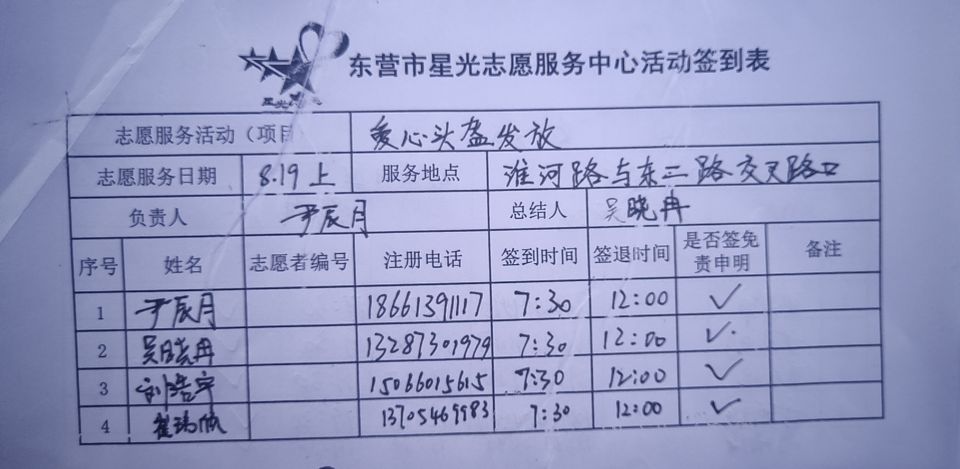 东营市星光志愿服务中心活动签到表
星光
志愿服务活动（项目 爱心头盔发放
志愿服务日期 8.19 上 服务地点 淮河路与东二路交叉路口
负责人 尹辰月 总结人 吴晓冉
序号 姓名 志愿者编号 注册电话 签到时间 签退时间 是否签免责申明 备注
1 尹辰月 18661391117 7:30 12:00 ✓
2 吴晓冉 13287301979 7:30 12:00 ✓
3 刘浩宇 15066015615 7:30 12:00 ✓
4 13705469983 7:30 12:00 ✓